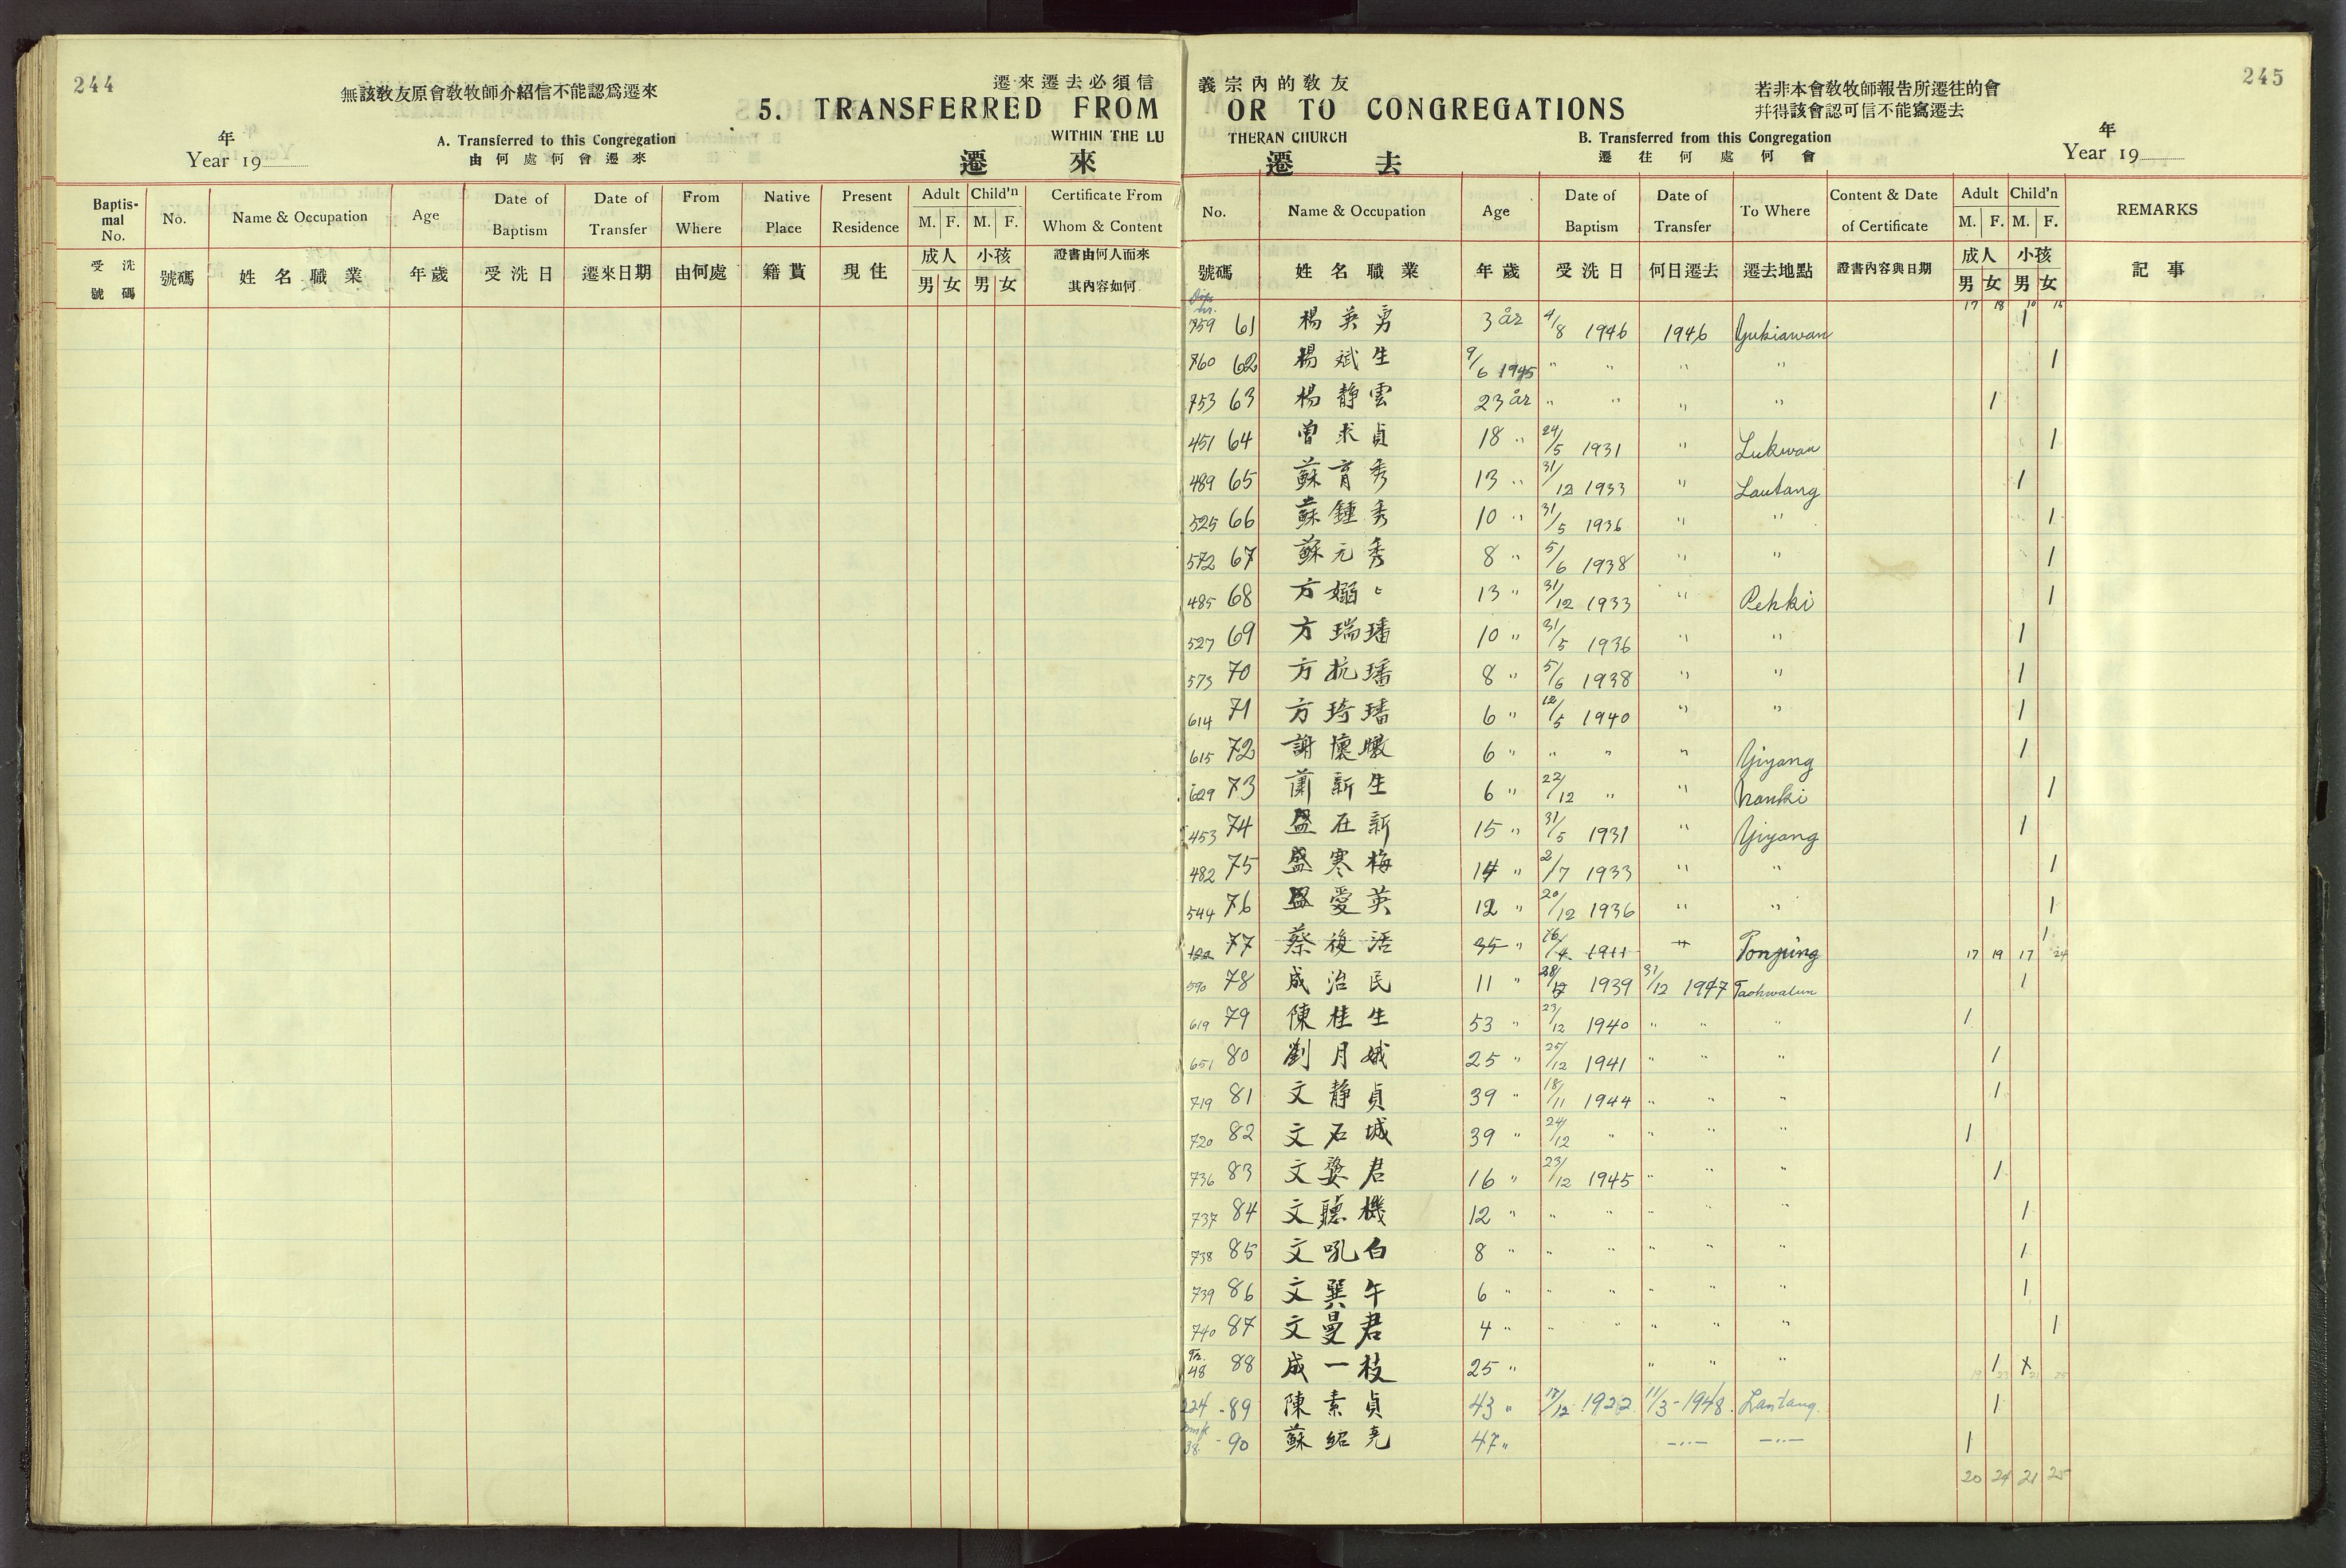 244
無該敎友原會敎牧師介紹信不能認爲遷來
遷來遷去必須信
5. TRANSFERRED FROM
年
Year 19
A. Transferred to this Congregation
由何處何會遷來
WITHIN THE LU
遷 來
Baptis-mal No. No. Name & Occupation Age Date of Baptism Date of Transfer From Where Native Place Present Residence Adult M. F. Child'n M. F. Certificate From Whom & Content
受洗號碼 號碼 姓名職業 年歲 受洗日 遷來日期 由何處 籍貫 現住 成人 男 女 小孩 男 女 證書由何人而來 其內容如何
245
義宗內的敎友
若非本會敎牧師報告所遷往的會
幷得該會認可信不能寫遷去
OR TO CONGREGATIONS
THERAN CHURCH
B. Transferred from this Congregation
遷往何處何會
年
Year 19
遷 去
No. Name & Occupation Age Date of Baptism Date of Transfer To Where Content & Date of Certificate Adult M. F. Child'n M. F. REMARKS
號碼 姓名職業 年歲 受洗日 何日遷去 遷去地點 證書內容與日期 成人 男 女 小孩 男 女 記事
17 18 10 15
759 61 楊英勇 3 år 4/8 1946 1946 Yukiawan 1
760 62 楊斌生 9/6 1945 " " " " 1
753 63 楊靜雲 23 år " " " " 1
451 64 曾求貞 18 " 24/5 1931 " Lukwan 1
489 65 蘇育秀 13 " 31/12 1933 " Lautang 1
525 66 蘇鍾秀 10 " 31/5 1936 " " 1
572 67 蘇元秀 8 " 5/6 1938 " " 1
485 68 方嫋〻 13 " 31/12 1933 " Pehki 1
527 69 方瑞璠 10 " 31/5 1936 " " 1
573 70 方抗璠 8 " 5/6 1938 " " 1
614 71 方琦璠 6 " 12/5 1940 " " 1
615 72 謝懷暾 6 " " " " Yiyang 1
629 73 蕭新生 6 " 22/12 " " Nanki 1
453 74 盛在新 15 " 31/5 1931 " Yiyang 1
482 75 盛寒梅 14 " 2/7 1933 " " 1
544 76 盛愛英 12 " 20/12 1936 " " 1
122 77 蔡復活 35 " 16/4 1911 " Tonping 1
17 19 17 24
590 78 成治民 11 " 28/12 1939 31/12 1947 Taohwalun 1
619 79 陳桂生 53 " 23/12 1940 " " " 1
651 80 劉月娥 25 " 25/12 1941 " " " 1
719 81 文靜貞 39 " 18/11 1944 " " " 1
720 82 文石城 39 " 24/12 " " " " 1
736 83 文婺君 16 " 23/12 1945 " " " 1
737 84 文聽機 12 " " " " " " 1
738 85 文吼白 8 " " " " " " 1
739 86 文巽午 6 " " " " " " 1
740 87 文曼君 4 " " " " " " 1
Tr. 48 88 成一枝 25 " " " " 1
224 89 陳素貞 43 " 17/12 1922 11/3 - 1948 Lautang 1
38 90 蘇紹堯 47 " -"- -"- 1
20 24 21 25